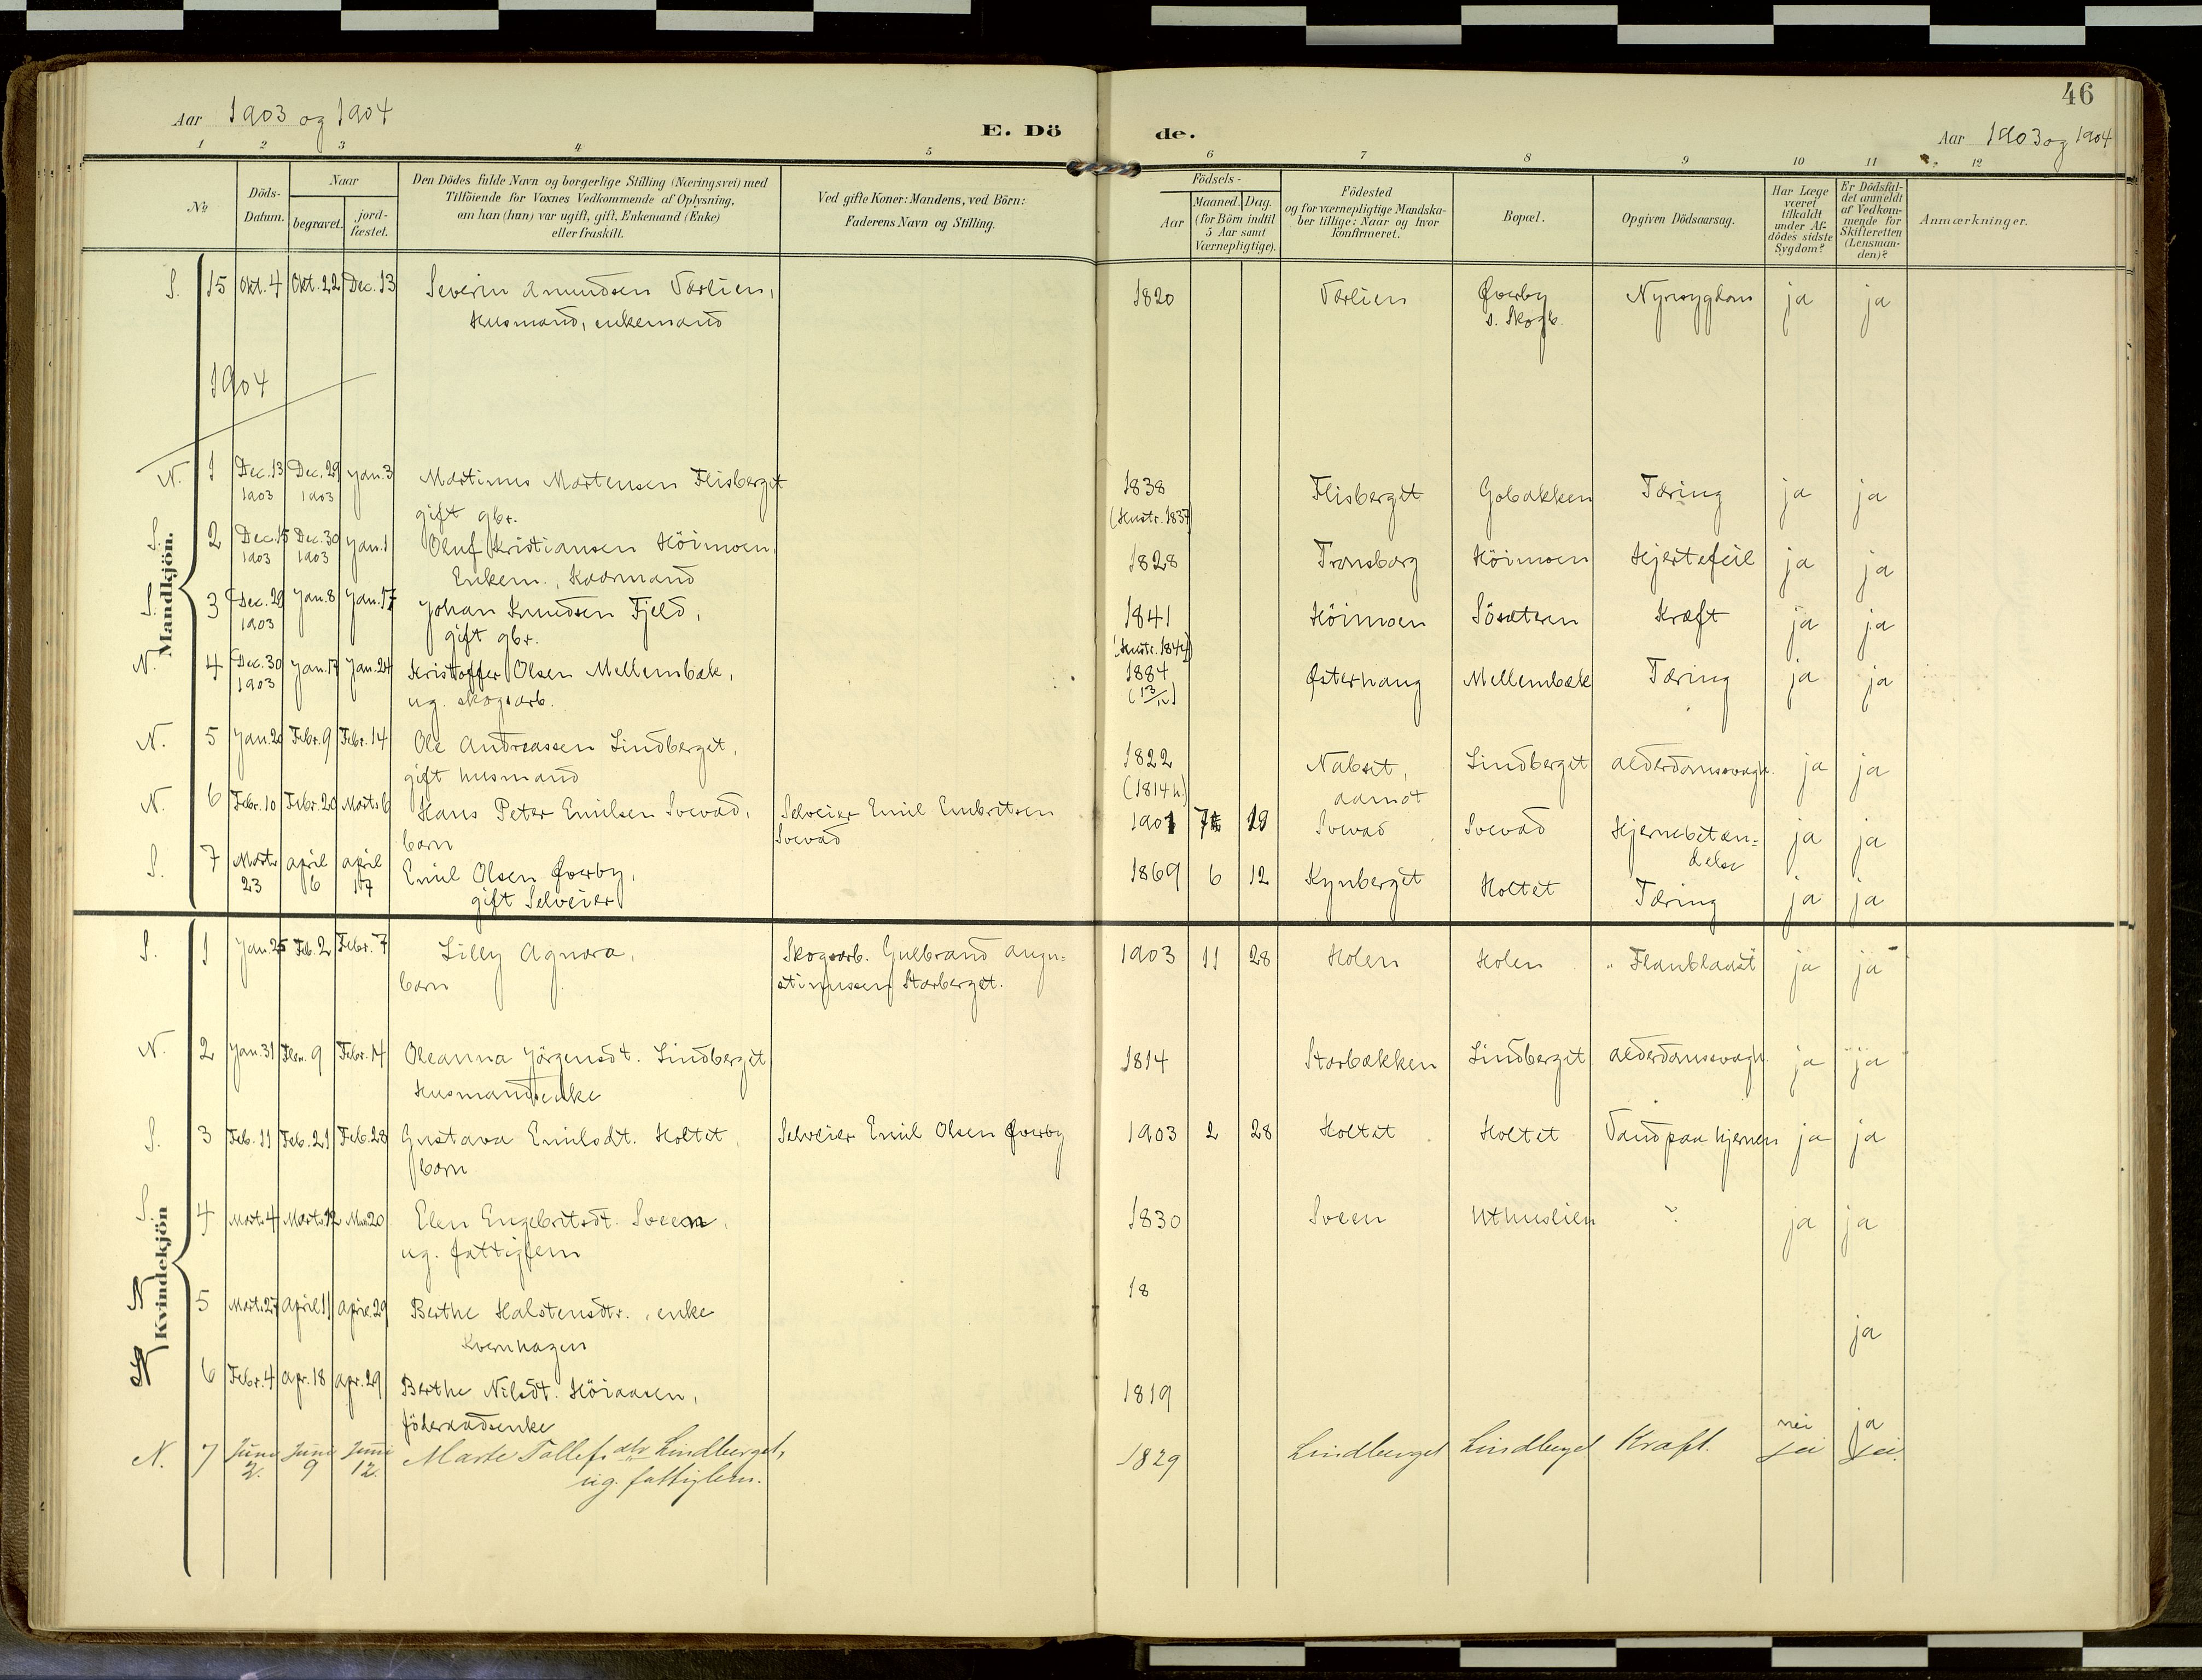 46
Aar 1903 og 1904
E. Dö
de.
Aar 1903 og 1904
1 2 3 4 5 6 7 8 9 10 11 12
№
Döds-
Datum.
Naar
begravet.
jord-
fæstet.
Den Dödes fulde Navn og borgerlige Stilling (Næringsvei) med
Tilföiende for Voxnes Vedkommende af Oplysning,
om han (hun) var ugift, gift, Enkemand (Enke)
eller fraskilt.
Ved gifte Koner: Mandens, ved Börn:
Faderens Navn og Stilling.
Födsels-
Aar
Maaned. Dag.
(for Börn indtil
5 Aar samt
Værnepligtige).
Födested
og for værnepligtige Mandska-
ber tillige: Naar og hvor
konfirmeret.
Bopæl.
Opgiven Dödsaarsag.
Har Læge
været
tilkaldt
under Af-
dödes sidste
Sygdom?
Er Dödsfal-
det anmeldt
af Vedkom-
mende for
Skifteretten
(Lensman-
den)?
Anmærkninger.
S. 15 Okt. 4 Okt. 22 Dec. 13 Severin Amundsen Værlien, 1820 Værlien Øverby Nyresygdom ja ja
Husmand, enkemand s. Skogb.
1904
Mandkjön.
N. 1 Dec. 13 Dec. 29 Jan. 3 Martinus Mortensen Flisberget 1838 Flisberget Gobakken Tæring ja ja
1903 1903 gift gbr. (Hustr. 1837)
S. 2 Dec. 15 Dec. 30 Jan. 1 Oluf Kristiansen Höimoen, 1828 Tronsborg Höimoen Hjertefeil ja ja
1903 1903 Enkem., Kaarmand
S. 3 Dec. 29 Jan. 8 Jan. 17 Johan Knudsen Fjeld, 1841 Höimoen Sösæteren Kræft ja ja
1903 gift gbr. (Hustr. 1844)
N. 4 Dec. 30 Jan. 17 Jan. 24 Kristoffer Olsen Mellembæk, 1884 Østerhaug Mellembæk Tæring ja ja
1903 ug. skogsarb.
N. 5 Jan. 20 Febr. 9 Febr. 14 Ole Andreassen Lindberget, 1822 Nabset, Lindberget alderdomssvagh. ja ja
gift husmand (1814 h.) aamot
N. 6 Febr. 10 Febr. 20 Marts 6 Hans Peter Emilsen Svevad, Selveier Emil Embretsen 1901 7 19 Svevad Svevad Hjernebetæn= ja ja
barn Svevad delse
S. 7 Marts april april Emil Olsen Øverby, 1869 6 12 Kynberget Holtet Tæring ja ja
23 6 17 gift Selveier
Kvindekjön
S. 1 Jan. 25 Feb. 2 Febr. 7 Lilly Agnora, Skogsarb. Gulbrand augu= 1903 11 28 Holen Holen Flaublaast ja ja
barn stinussen Storberget.
N. 2 Jan. 31 Febr. 9 Febr. 14 Oleanna Jörgensdt. Lindberget 1814 Storbækken Lindberget alderdomssvagh. ja ja
Husmandsenke
S. 3 Feb. 11 Feb. 21 Feb. 28 Gustava Emilsdt. Holtet, Selveier Emil Olsen Øverby 1903 2 28 Holtet Holtet Vand paa hjernen ja ja
barn
S. 4 Marts 4 Marts 12 Mar. 20 Elen Engebretsdt. Sveen, 1830 Sveen Uthuslien ? ja ja
ug. fattiglem
N 5 Marts 27 april 11 april 29 Berthe Halstensdtr., enke 18
Kvernhagen ja
N 6 Febr. 4 apr. 18 apr. 29 Berthe Nilsdt. Höiaasen, 1819
föderaadsenke nei ja
N. 7 Juni Juni Juni Marte Tollefsdtr Lindberget, 1829 Lindberget Lindberget Kraft.
2. 9 12. ug. fattiglem.